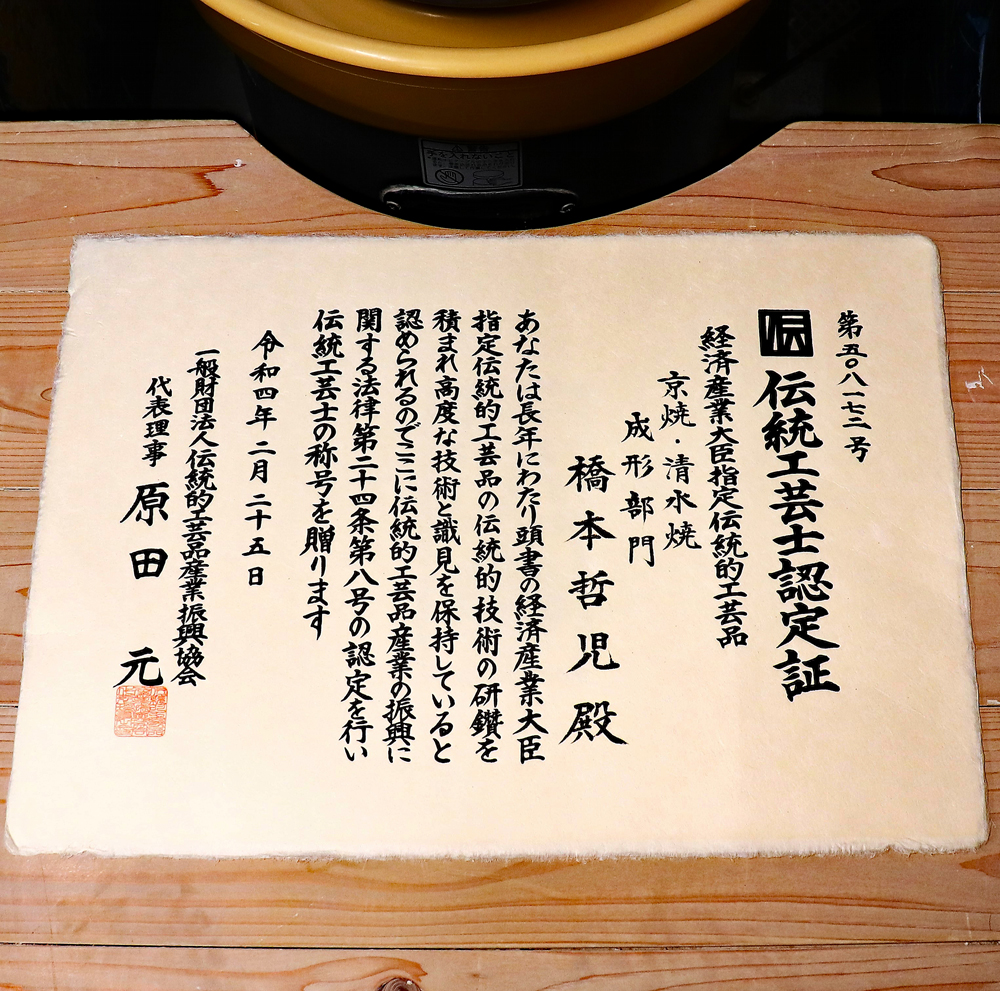 第五〇八一七三号
伝 伝統工芸士認定証
経済産業大臣指定伝統的工芸品
京焼・清水焼
成形部門
橋本哲児殿
あなたは長年にわたり頭書の経済産業大臣
指定伝統的工芸品の伝統的技術の研鑽を
積まれ高度な技術と識見を保持していると
認められるのでここに伝統的工芸品産業の振興に
関する法律第二十四条第八号の認定を行い
伝統工芸士の称号を贈ります
令和四年二月二十五日
一般財団法人伝統的工芸品産業振興協会
代表理事 原田 元